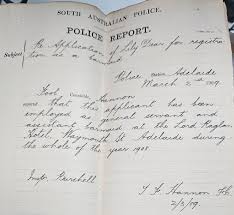 SOUTH AUSTRALIAN POLICE.
POLICE REPORT.
Subject Re Application of Lily Dear for registra
tion as a barmaid
Police Adelaide
March 2nd 1909.
Foot Constable, Hannon
reports that this applicant has been
employed as general servant and
assistant barmaid at the Lord Raglan
Hotel, Waymouth St Adelaide during
the whole of the year 1908.
Insp. Burchell
T F Hannon F.C.
2/3/09.